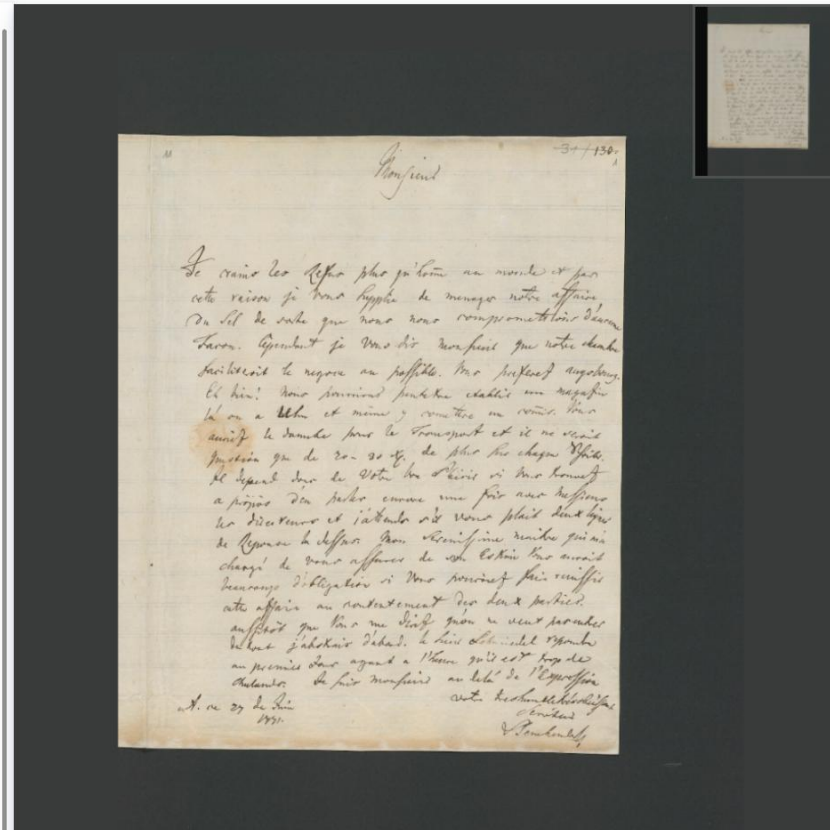 130
Monsieur
Je crains les Refus plus qu'home au monde et par
cette raison je vous supplie de menager notre affaire
du Sel de sorte que nous nous comprometions d'aucune
Facon. Cependant je vous dis monsieur que notre chambre
faciliteroit le negoce au possible. Vous preferez augsbourg.
Eh bien! nous pourrions peutetre etablir un magasin
là ou a Ulm et même y mettre un comis. Vous
auriez le danube pour le Transport et il ne seroit
question que de 20 - 30 x. de plus sur chaque
Il depend donc de Votre bon plaisir si vous trouvez
a propos d'en parler encore une fois avec Messieurs
les directeurs et j'attends s'il vous plait deux lignes
de Reponse la dessus. Mon Serenissime maitre qui m'a
chargé de vous assurer de son Estime vous auroit
beaucoup d'obligation si vous pouviez faire reussir
cette affaire au contentement des deux parties.
aussitôt que vous me direz qu'on ne veut pas entrer
du tout j'abstrais d'abord. le Sieur repondra
au premier Jour ayant a l'heure qu'il est trop de
Je suis monsieur au delà de l'Expression
votre
A. ce 27 de Juin